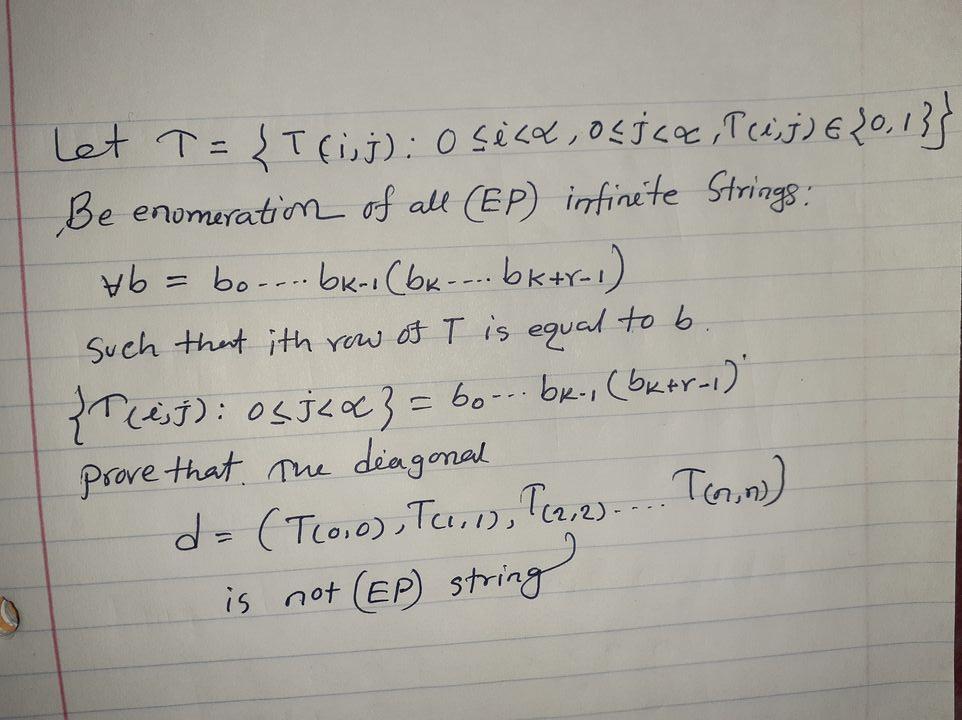 Let T = { T(i,j): 0 ≤ i < α, 0 ≤ j < α, T(i,j) ∈ {0,1}}
Be enomeration of all (EP) infinite Strings:
∀b = b0 .... bK-1 (bK .... bK+r-1)
Such that ith row of T is equal to b.
{T(i,j): 0 ≤ j < α} = b0 ... bK-1 (bK+r-1)
prove that. The diagonal
d = (T(0,0), T(1,1), T(2,2) ..... T(n,n))
is not (EP) string